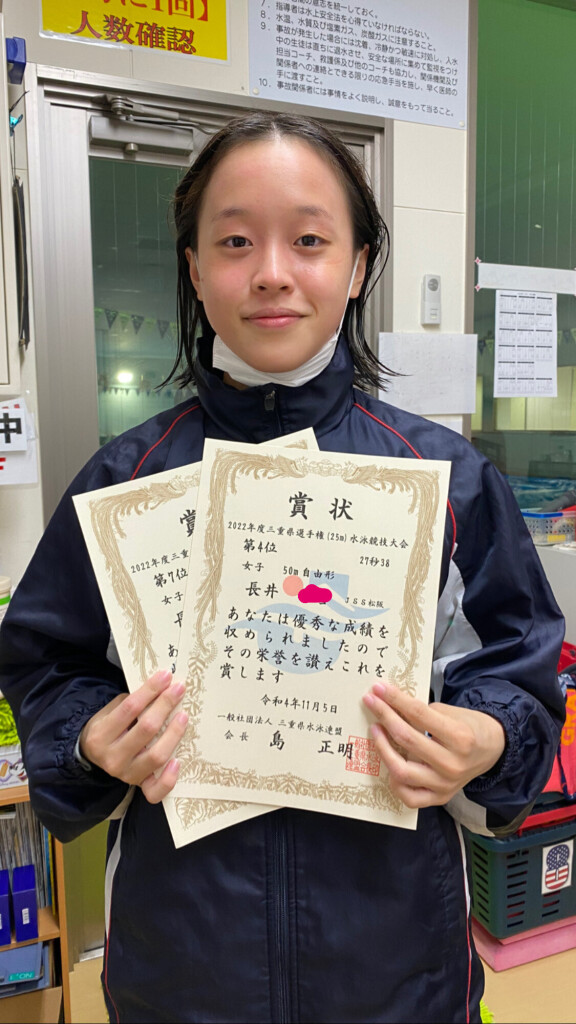 に1回】
人数確認
の意志を統一しておく。
8．指導者は水上安全法を心得ていなければならない。
水温、水質及び塩素ガス、炭酸ガスに注意すること。
9．事故が発生した場合には沈着、冷静かつ敏速に対処し、入水
中の生徒は直ちに退水させ、安全な場所に集めて監視をつけ
担当コーチ、救護係及び他のコーチも協力し、関係機関及び
関係者への連絡とできる限りの応急手当を施し、早く医師の
手に渡すこと。
10．事故関係者には事情をよく説明し、誠意をもって当ること。
中
賞
2022年度三重
第7位
女子
賞状
2022年度三重県選手権(25m)水泳競技大会
第4位 27秒38
女子 50m自由形
長井 JSS松阪
あなたは優秀な成績を
収められましたので
その栄誉を讃えこれを
賞します
令和4年11月5日
一般社団法人 三重県水泳連盟
会長 島 正明
8